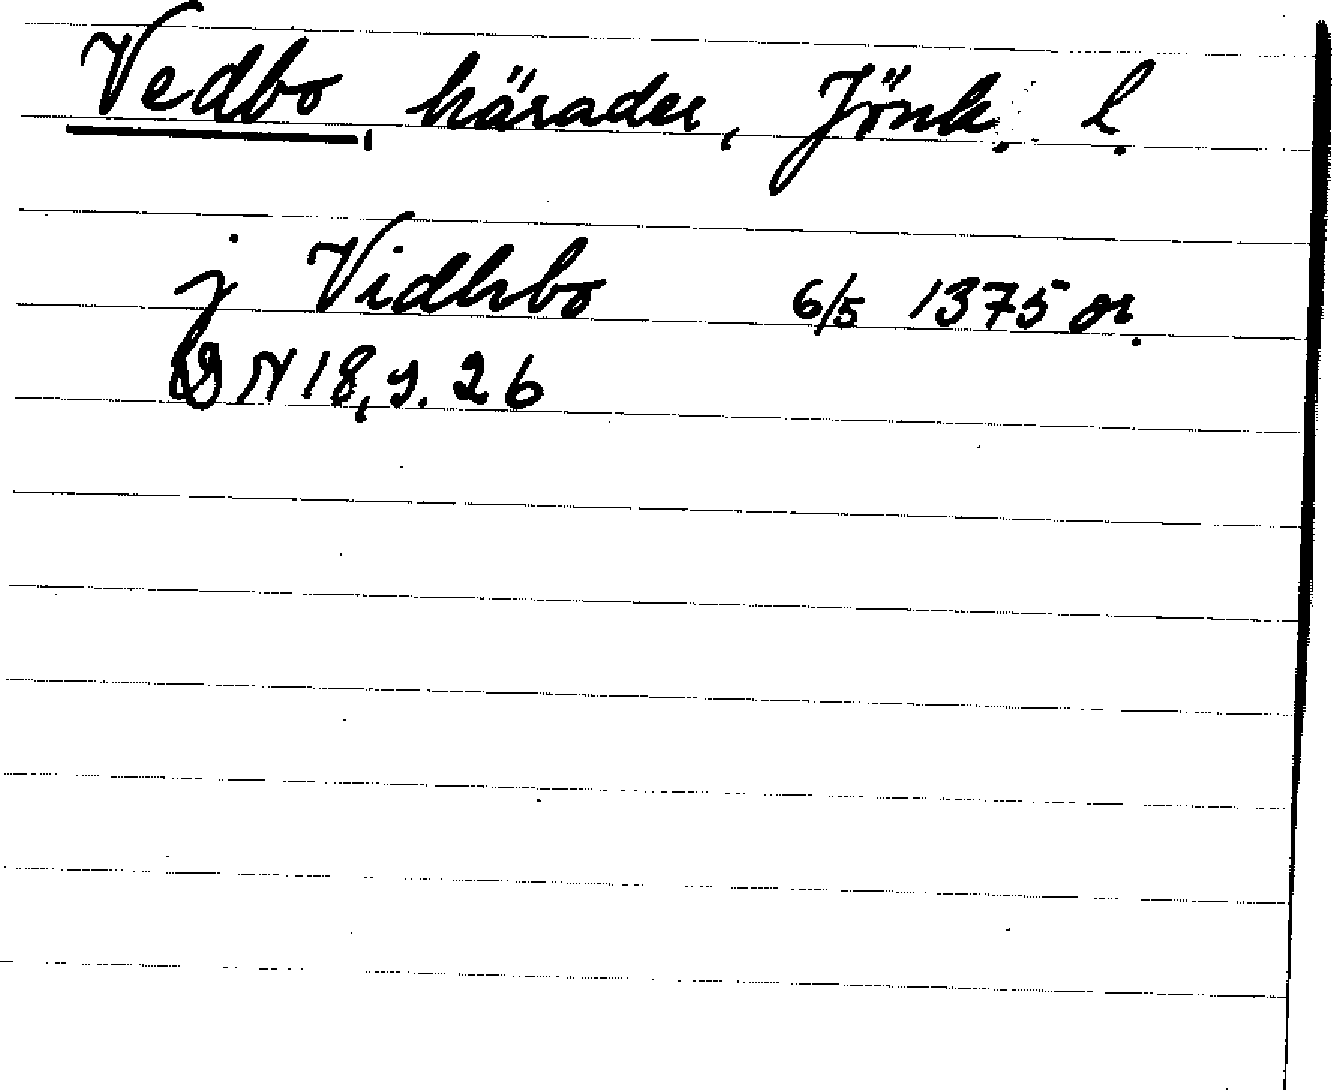 Vedbo, härader, Jönk. l.
j Vidhbo 6/5 1375 or.
DN 18, s. 26